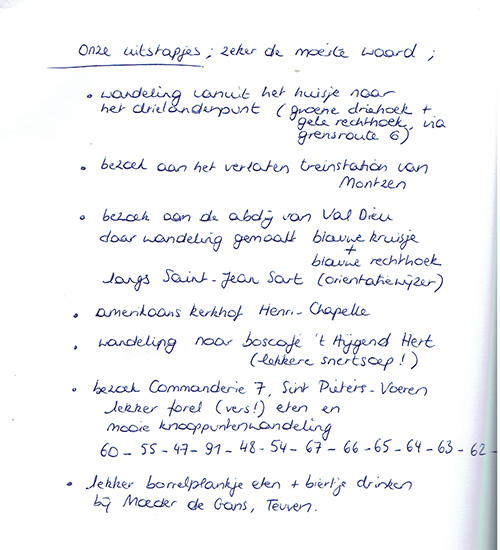 Onze uitstapjes ; zeker de moeite waard ;
• wandeling vanuit het huisje naar
het drielandenpunt ( groene driehoek +
gele rechthoek, via
grensroute 6)
• bezoek aan het verlaten treinstation van
Montzen
• bezoek aan de abdij van Val Dieu
daar wandeling gemaakt blauwe kruisje
+
blauwe rechthoek
langs Saint-Jean Sart (orientatiewijzer)
• amerikaans kerkhof Henri-Chapelle
• wandeling naar boscafé 't Hijgend Hert
(-lekkere snertsoep!)
• bezoek Commanderie 7, Sint Pieters-Voeren
lekker forel (vers!) eten en
mooie knooppuntenwandeling
60 - 55 - 47 - 91 - 48 - 54 - 67 - 66 - 65 - 64 - 63 - 62 -
• lekker borrelplankje eten + biertje drinken
bij Moeder de Gans, Teuven.